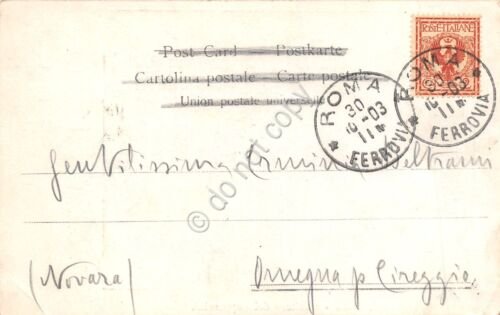 Post Card — Postkarte
POSTE ITALIANE
Cartolina postale — Carte postale
Union postale universelle
ROMA
30
10-03
11 M
FERROVIA
ROMA
30
10-03
11 M
FERROVIA
Gentilissima Erminia
(Novara)
Omegna p Cireggio
© do not copy